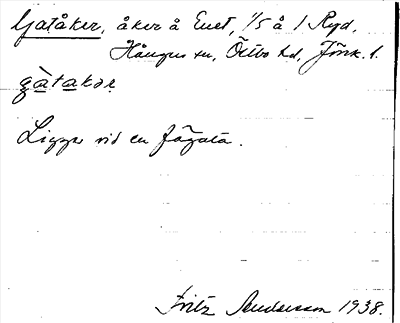 Gatåker, åker å Enet, 1/5 å 1 Ryd,
Hångers sn, Östbo hd, Jönk. l.
gàtakər
Ligger vid en fägata.
Fritz Andersson 1938.